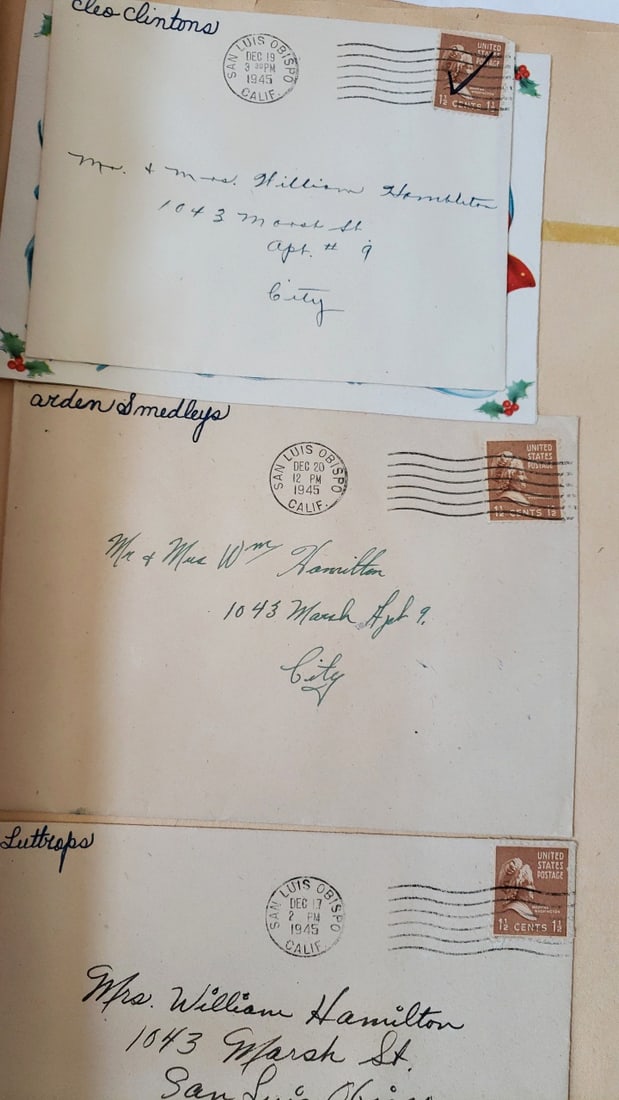 Cleo Clintons
SAN LUIS OBISPO
DEC 19
3 30 PM
1945
CALIF.
UNITED
STATES
POSTAGE
1½ CENTS 1½
Mr. & Mrs. William Hambleton
1043 Marsh St
Apt. # 9
City
arden Smedleys
SAN LUIS OBISPO
DEC 20
12 PM
1945
CALIF.
UNITED
STATES
POSTAGE
1½ CENTS 1½
Mr & Mrs Wm Hamilton
1043 Marsh Apt 9.
City
Luttrops
SAN LUIS OBISPO
DEC 17
2 PM
1945
CALIF.
UNITED
STATES
POSTAGE
MARTHA
WASHINGTON
1½ CENTS 1½
Mrs. William Hamilton
1043 Marsh St.
San Luis Obispo